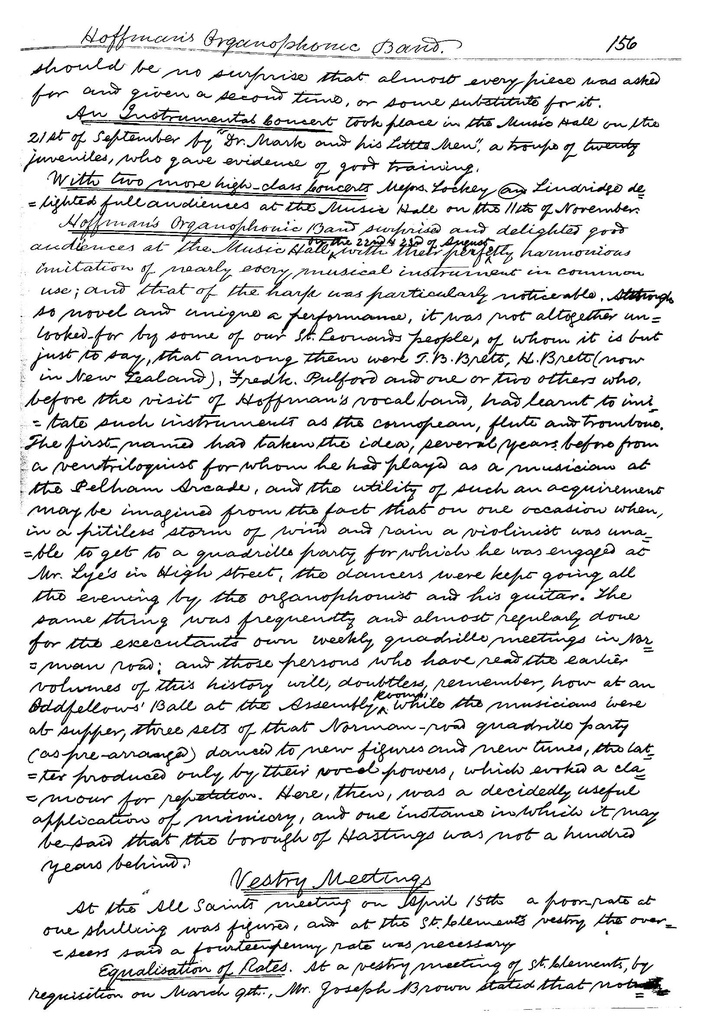 Hoffman's Organophonic Band. 156
should be no surprise that almost every piece was asked
for and given a second time, or some substitute for it.
An Instrumental Concert took place in the Music Hall on the
21st of September by "Dr. Mark and his Little Men", a troupe of twenty
juveniles, who gave evidence of good training.
With two more high-class concerts Messrs. Lockey and Lindridge de=
=lighted full audiences at the Music Hall on the 11th of November.
Hoffman's Organophonic Band surprised and delighted good
audiences at the Music Hall on the 22nd & 23rd of August with their perfectly harmonious
imitation of nearly every musical instrument in common
use; and that of the harp was particularly noticeable. Although
so novel and unique a performance, it was not altogether un=
looked-for by some of our St. Leonards people, of whom it is but
just to say, that among them were T. B. Brett, H. Brett (now
in New Zealand), Fredk. Pulford and one or two others who,
before the visit of Hoffman's vocal band, had learnt to imi=
=tate such instruments as the cornopean, flute and trombone.
The first-named had taken the idea, several years before from
a ventriloquist for whom he had played as a musician at
the Pelham Arcade, and the utility of such an acquirement
may be imagined from the fact that on one occasion when,
in a pitiless storm of wind and rain a violinist was una=
=ble to get to a quadrille party for which he was engaged at
Mr. Lye's in High street, the dancers were kept going all
the evening by the organophonist and his guitar. The
same thing was frequently and almost regularly done
for the executants own weekly quadrille meetings in Nor=
=man road; and those persons who have read the earlier
volumes of this history will, doubtless, remember, how at an
Oddfellows' Ball at the Assembly Rooms, while the musicians were
at supper, three sets of that Norman-road quadrille party
(as pre-arranged) danced to new figures and new tunes, the lat=
=ter produced only by their vocal powers, which evoked a cla=
=mour for repetition. Here, then, was a decidedly useful
application of mimicry, and one instance in which it may
be said that the borough of Hastings was not a hundred
years behind.
Vestry Meetings
At the "All Saints meeting on April 15th a poor-rate at
one shilling was figured, and at the St. Clements vestry the over=
=seers said a fourteenpenny rate was necessary
Equalisation of Rates. At a vestry meeting of St. Clements, by
requisition on March 9th., Mr. Joseph Brown stated that not